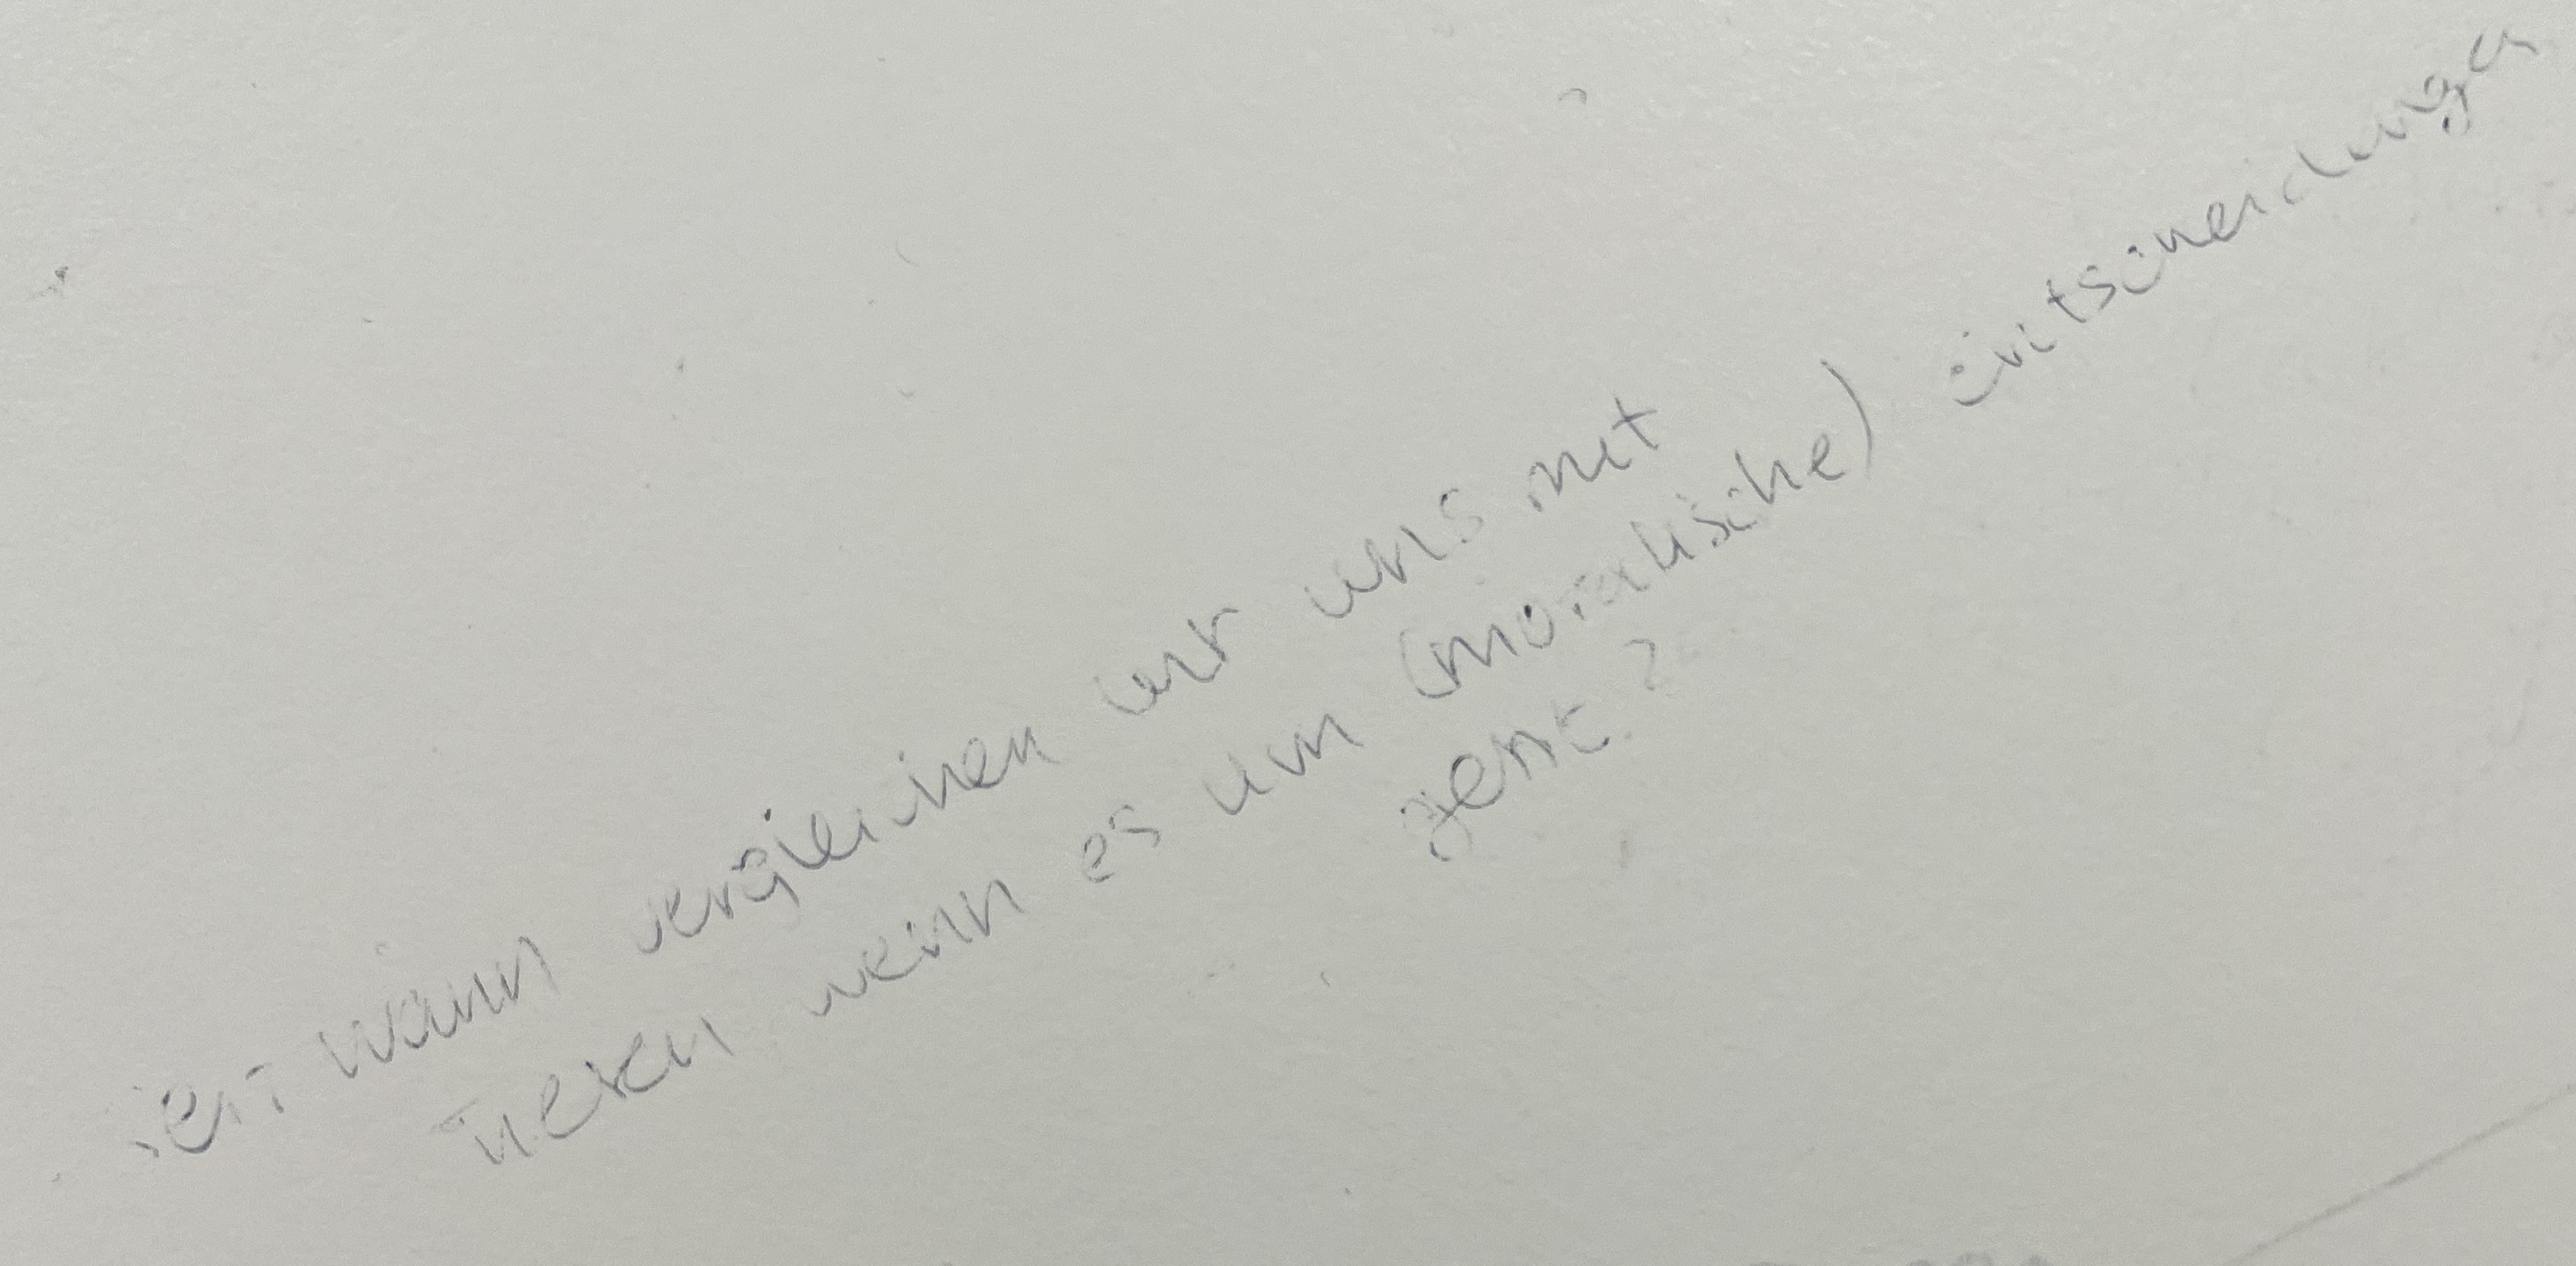 seit wann vergleichen wir uns mit
Tieren wenn es um (moralische) Entscheidungen
geht?